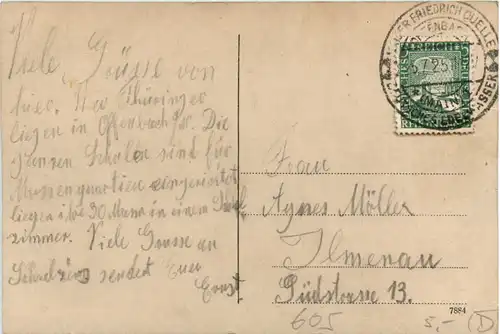 Viele Grüsse von
hier. Wir Thüringer
liegen in Offenbach /M. Die
ganzen Schulen sind für
Massenquartier eingerichtet
liegen ibr 30 Mann in einem
zimmer. Viele Grüsse an
sendet Euer
Ernst
KAISER FRIEDRICH QUELLE
5.7.25
(MAIN)
Frau
Agnes Möller
Ilmenau
Südstrasse 13.
7884
605
5,-